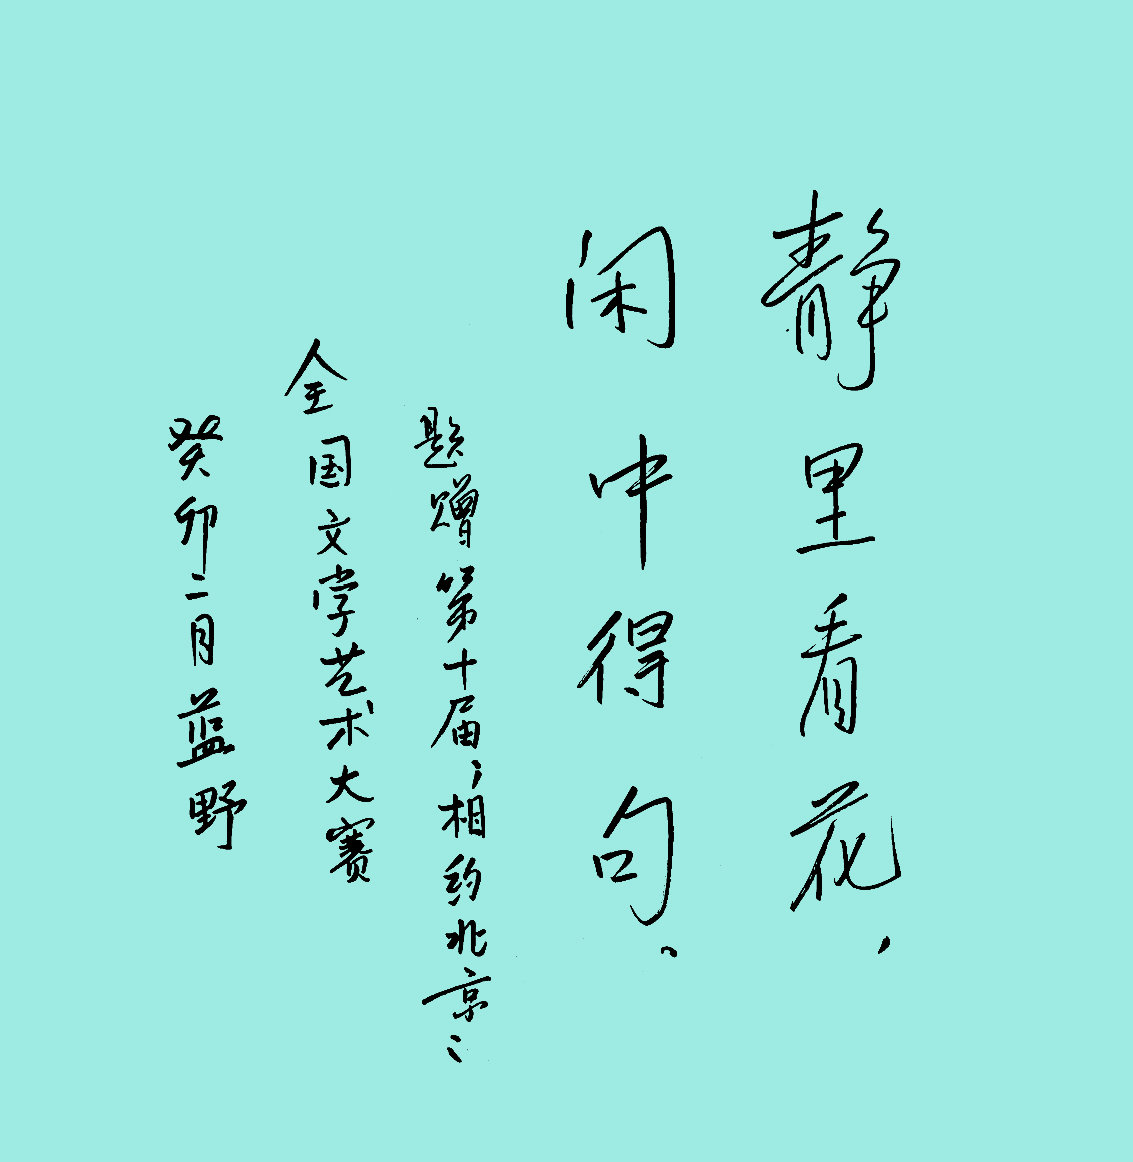 静里看花，
闲中得句。
题赠第十届"相约北京"
全国文学艺术大赛
癸卯二月蓝野